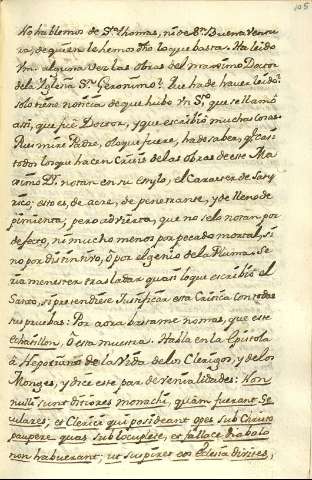 105
No hablemos de Sto. Thomas, ni de Sn. Buena Ventu
ra, de quien le hemos dho lo que basta. Ha leido
Vm. alguna vez las obras del maximo Doctor
de la Iglesia Sn. Geronimo? Que ha de haver leido?
Solo tiene noticia de que hubo Vn Sto. que se llamó
assi, que fué Doctor, y que escribió muchas cosas.
Pues mire Padre, ó lo que fuere, ha de saber, q casi
todos los que hacen Crisis de las obras de este Ma
ximo Dr. notan en su estylo, el Caracter de Saty
rico; esto es, de acre, de penetrante, y de lleno de
pimienta; pero advierta, que no se lo notan por
defecto, ni mucho menos por pecado mortal, si
no por distintivo, ó por el genio de la Pluma. Se
ria menester trasladar quasi lo que escribió el
Santo, si pretendiese Justificar esta Critica con todas
sus pruebas: Por aora bastame no mas, que este
echantillon, ó esta muestra. Habla en la Epistola
à Nepociano de la Vida de los Clerigos, y de los
Monges, y dice este par de venialidades: Non
nulli sunt ditiores monachi, quàm fuerant Se
culares; et Clerici qui posideant opes sub Christo
paupere quas sub locuplete, et fallace diabolo
non habuerant; ut suspiret eos Eclesia divites,